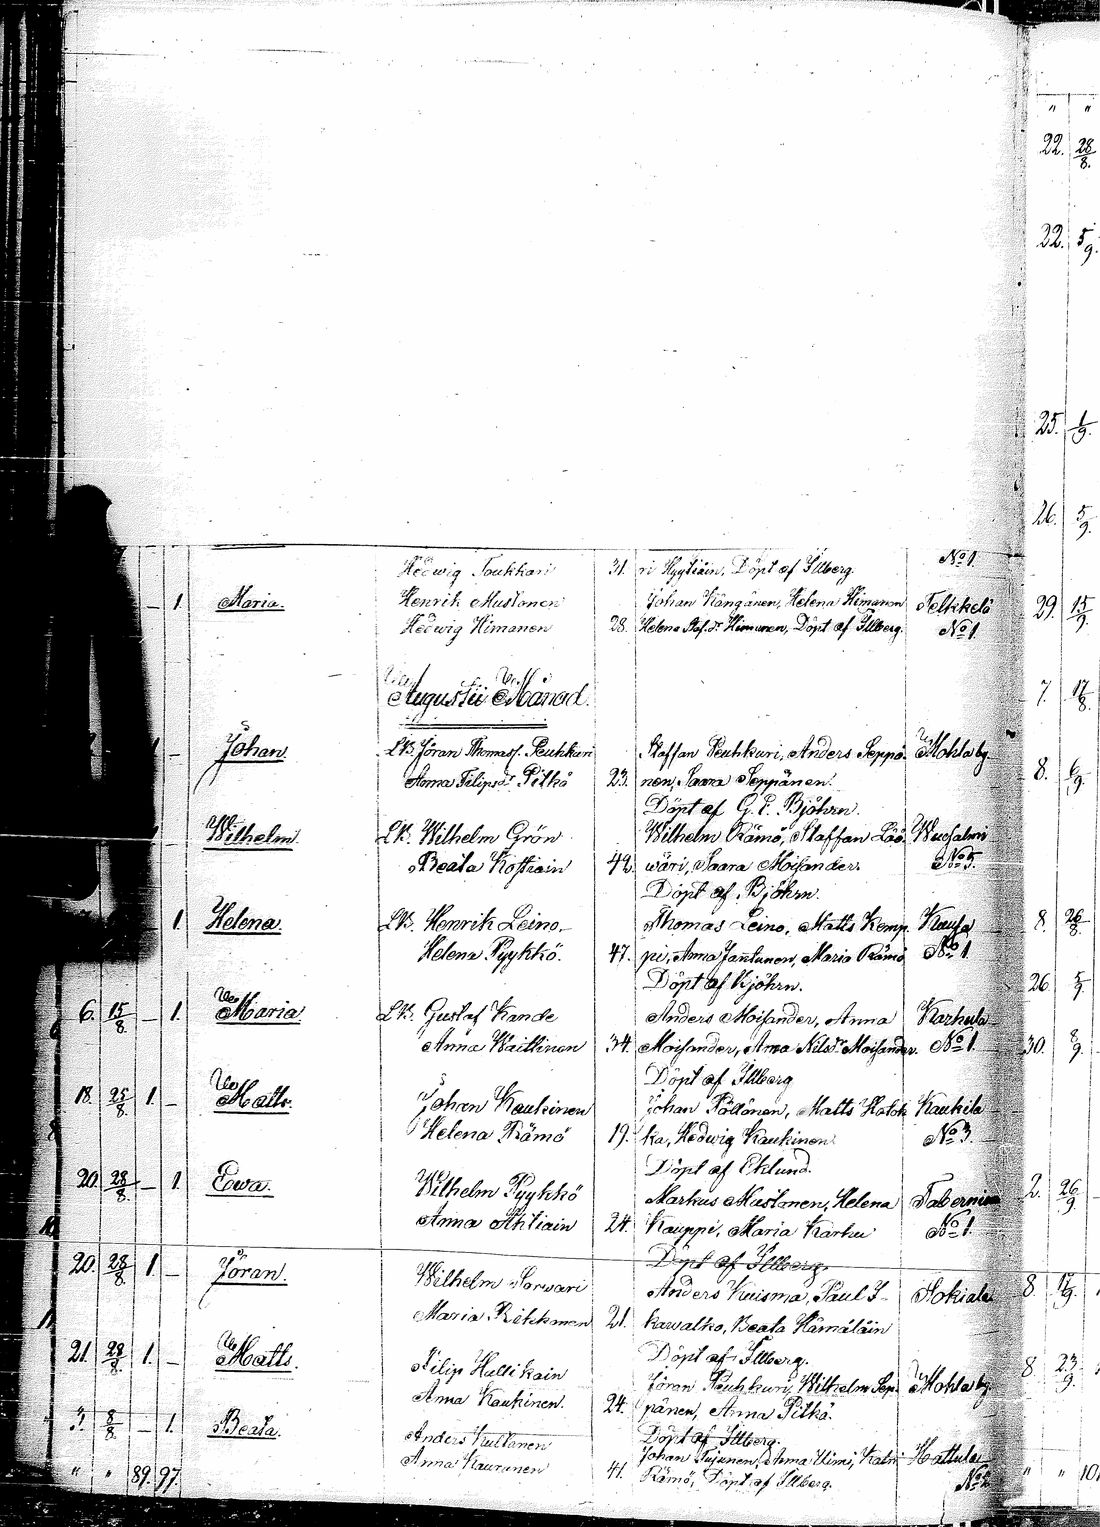 Hedwig Toukkari 31. ri Hyytiäin, Döpt af Illberg. No 1.
— 1. Maria. Henrik Mustonen Johan Kängänen, Helena Himanen Telkkelä
Hedwig Himanen 28. Helena Staf.dr Himanen, Döpt af Illberg. No 1.
Augustii Månad.
— Johan. LB. Jöran Thomasf. Peuhkuri Staffan Peuhkuri, Anders Seppä- Mohla by
Anna Filipsdr Pitkä 23. nen, Saara Seppänen.
Döpt af G. E. Björhn.
Wilhelm. LB. Wilhelm Grön Wilhelm Rämö, Staffan Lää- Wuosalmi
Beata Kossain 42. wäri, Saara Moisander. No 5.
Döpt af Björhn.
1. Helena. LB. Henrik Leino. Thomas Leino, Matts Kemp-
Helena Pyykkö. 47. pi, Anna Jantunen, Maria Rämö No 1.
Döpt af Björhn.
6. 15/8 — 1. Maria LB. Gustaf Kande Anders Moisander, Anna Karhula
Anna Waittinen 34. Moisander, Anna Nilsdr Moisander. No 1.
Döpt af Illberg
18. 25/8 1. — Matts. Johan Kaukinen Johan Pöllönen, Matts Hatak- Kaukila
Helena Rämö 19. ka, Hedwig Kaukinen. No 3.
Döpt af Eklund.
20. 28/8 — 1. Ewa. Wilhelm Pyykkö Markus Mustonen, Helena
Anna Ahtiain 24. Kauppi, Maria Karhu No 1.
Döpt af Illberg.
20. 28/8 1. — Jöran. Wilhelm Sorwari Anders Kuisma, Paul I-
Maria Rikkonen 21. kawalko, Beata Hämäläin
Döpt af Illberg.
21. 28/8 1. — Matts. Filip Hallikain Jöran Peuhkuri, Wilhelm Sep- Mohla by
Anna Kaukinen. 24. pänen, Anna Pitkä.
Döpt af Illberg.
3. 8/8 — 1. Beata. Anders Kultanen Johan Anna Himi, Katri Hattula
" " 89. 97. Anna Kauranen 41. Rämö, Döpt af Illberg.
" "
22. 28/8.
22. 5/9.
25. 1/9.
26. 5/9.
29. 15/9.
7. 17/8.
8. 6/9.
8. 26/8.
26 5/9.
30. 8/9.
2. 26/9.
8. 17/9.
8 23/9.
" " 10